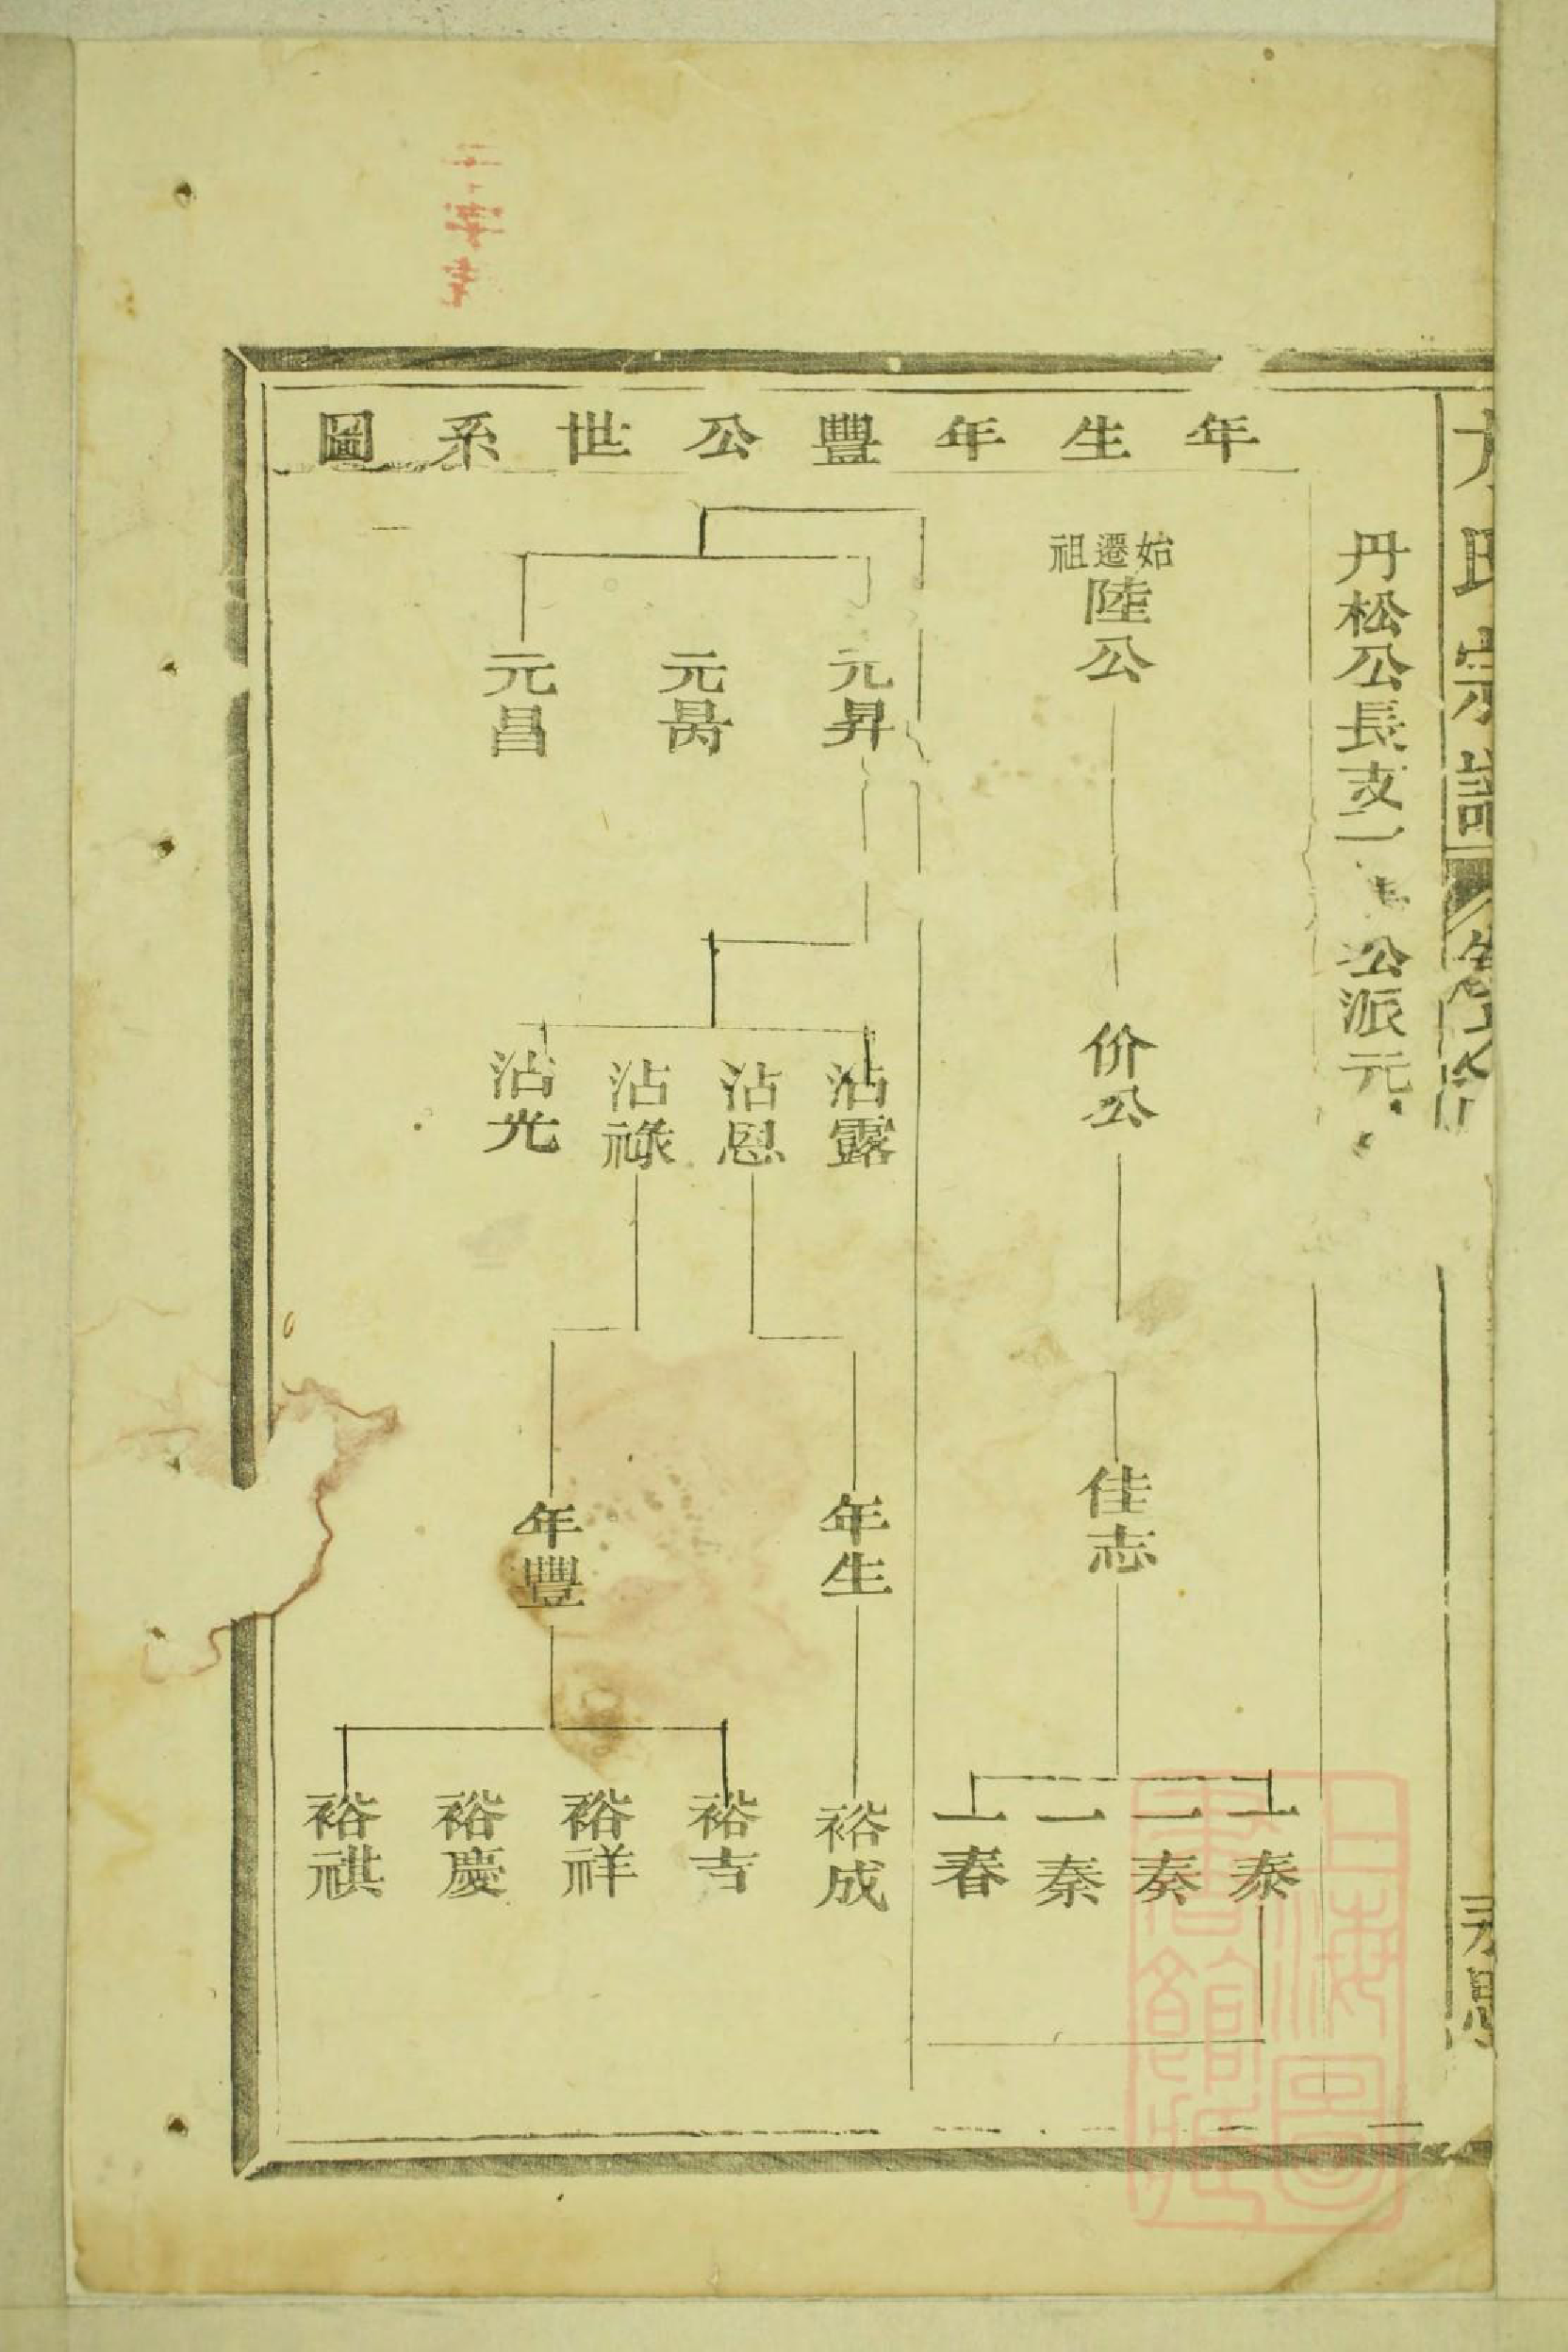 氏宗譜
丹松公長支
公派元
年生年豐公世系圖
始遷祖
陸公
价公
佳志
一泰
一奏
一秦
一春
元昇
元昺
元昌
沾露
沾恩
沾祿
沾光
年生
年豐
裕成
裕吉
裕祥
裕慶
裕祺
上海圖書館藏